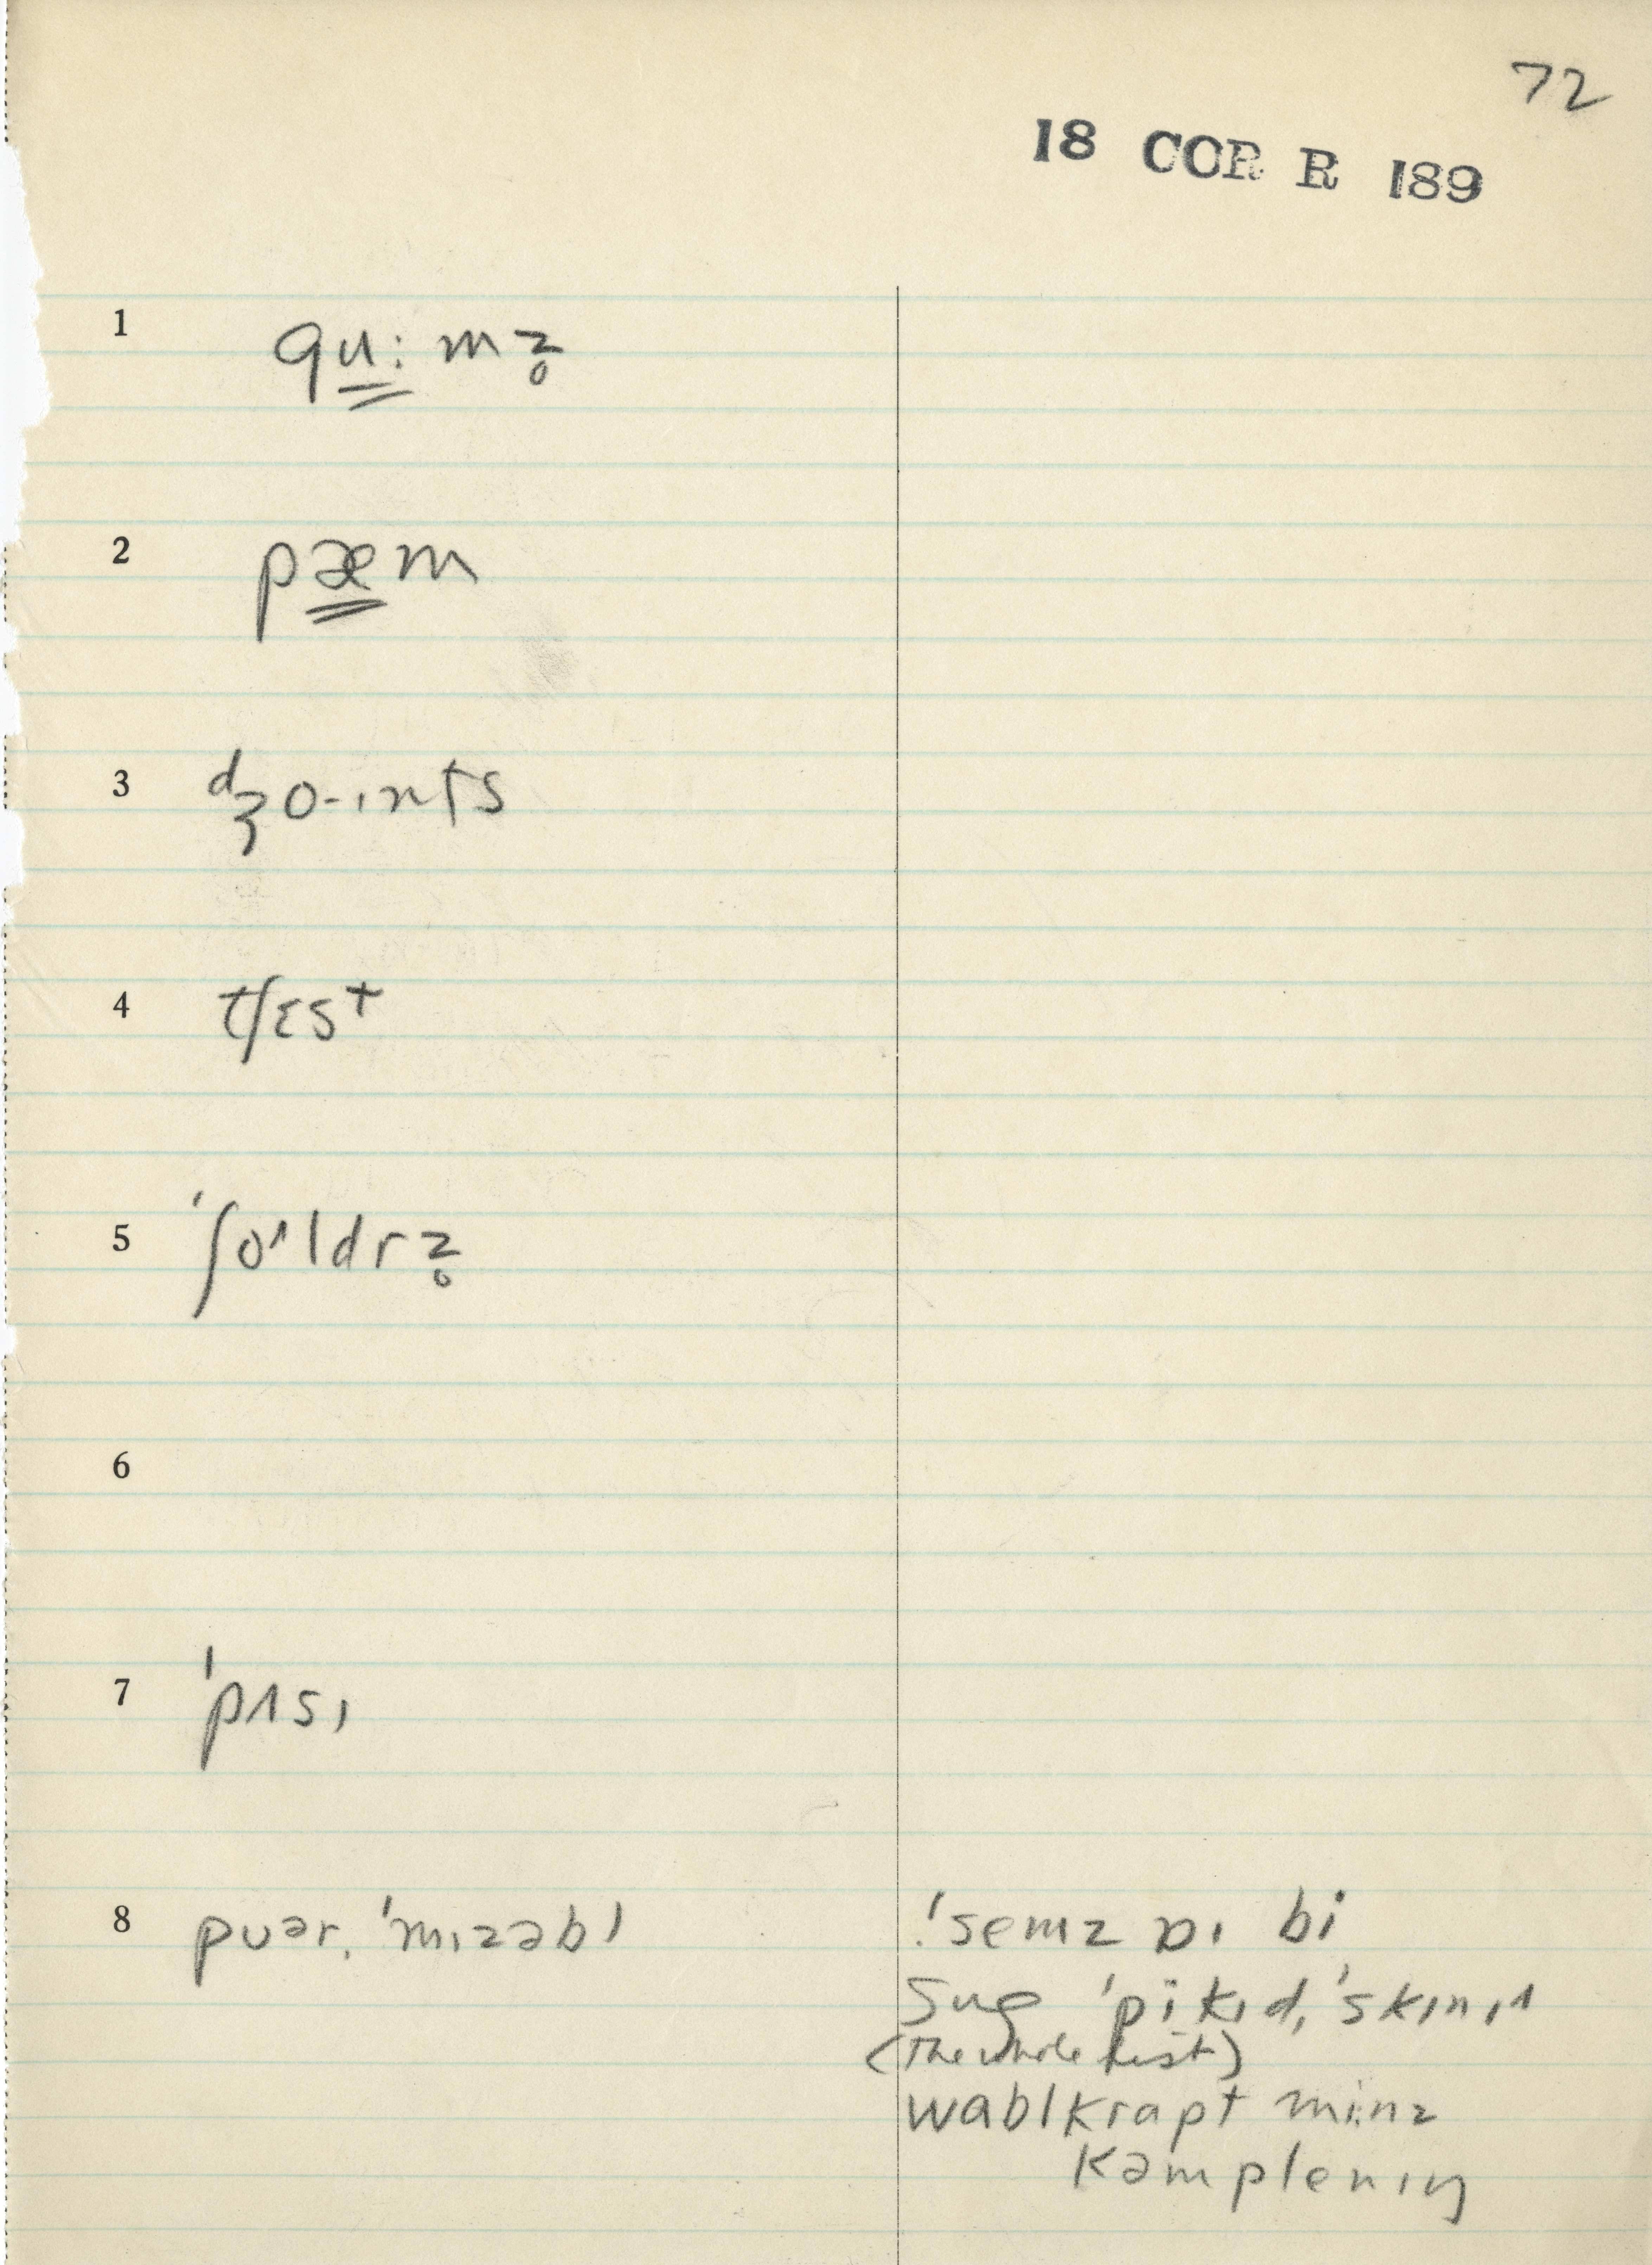 72
18 COR R 189
1 gu̳ːmz̥
2 pæ̳m
3 dʒo-ınts
4 tʃɛst
5 ˈʃoᶦldrz̥
6
7 ˈpɪsı
8 puər, ˈmızəbl ˈsemz ɒı bi
ˈpikıd, ˈskınıɪ
(The whole list)
wablkrapt minz
kəmplenıŋ